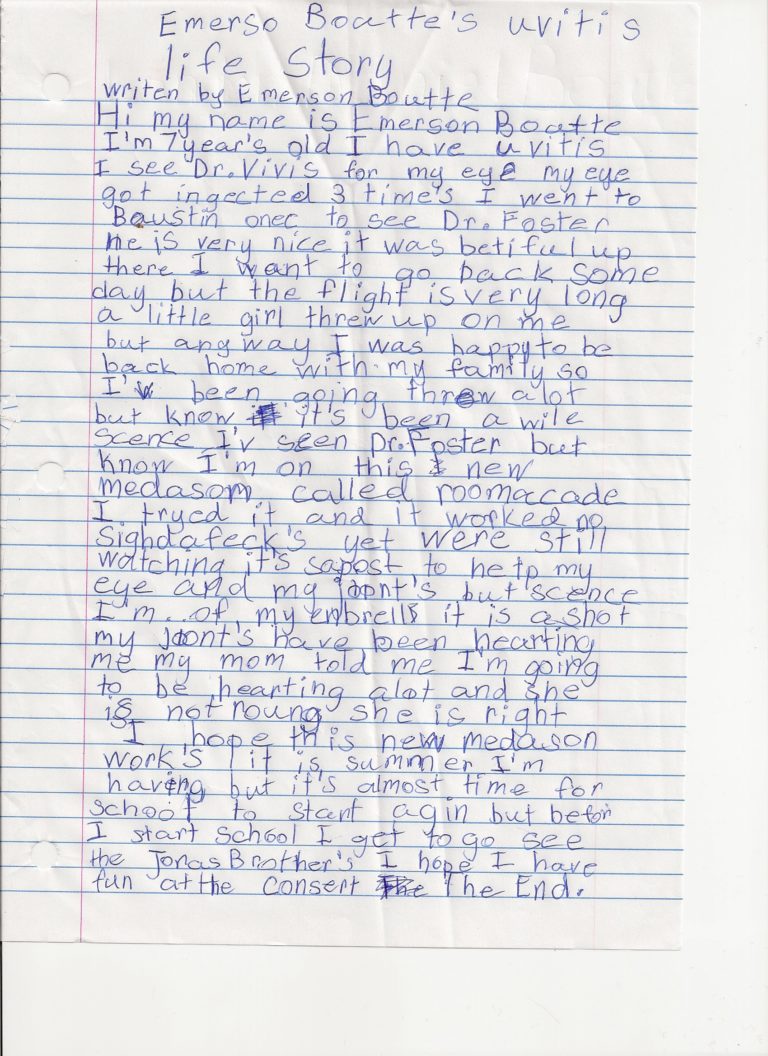 Emerso Boutte's uvitis
life Story
writen by Emerson Boutte
Hi my name is Emerson Boutte
I'm 7 year's old I have uvitis
I see Dr. Vivis for my eye my eye
got ingected 3 time's I went to
Baustin onec to see Dr. Foster
He is very nice it was betiful up
there I want to go back some
day but the flight is very long
a little girl threw up on me
but angway I was happy to be
back home with my family so
I'v been going threw alot
but know it's been a wile
scence I'v seen Dr. Foster but
know I'm on this new
medasom called roomaccade
I tryed it and it worked no
Sighdafeck's yet were still
watching it's sapost to help my
eye and my joont's but scence
I'm of my enbrell it is a shot
my joont's have been hearting
me my mom told me I'm going
to be hearting alot and she
is not roung she is right
I hope this new medason
work's it is summer I'm
having but it's almost time for
school to start agin but befor
I start school I get to go see
the Jonas Brother's I hope I have
fun at the consert The End.